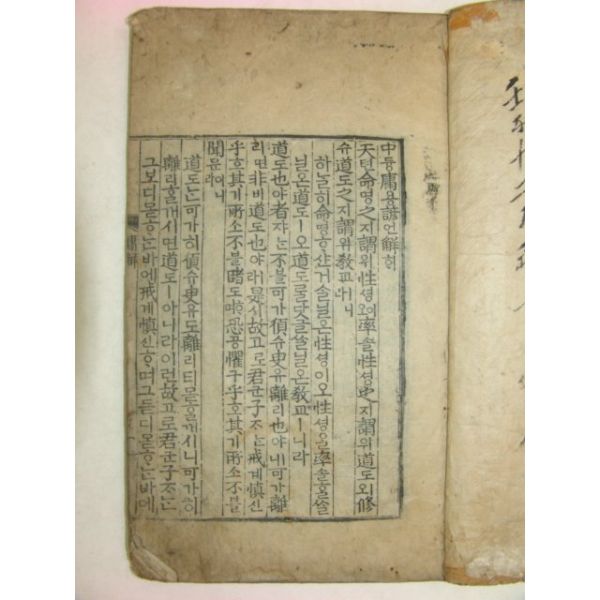 中듕庸용諺언解ᄒᆡ
天텬命명之지謂위性셩이오率솔性셩之지謂위道도ㅣ오修
슈道도之지謂위敎교ㅣ니라
하ᄂᆞᆯ히命명ᄒᆞ샨거ᄉᆞᆯ닐온性셩이오性셩을率솔ᄒᆞᆯᄉᆞᆯ
닐온道도ㅣ오道도ᄅᆞᆯ닷글ᄉᆞᆯ닐온敎교ㅣ니라
道도也야者쟈ᄂᆞᆫ不블可가須슈臾유離리也야ㅣ니可가離
리면非비道도也야ㅣ라是시故고로君군子ᄌᆞᄂᆞᆫ戒계愼신
乎호其기所소不블睹도ᄒᆞ며恐공懼구乎호其기所소不블
聞문이니라
道도ᄂᆞᆫ可가히須슈臾유도離리티몯ᄒᆞᆯ개시니可가히
離리ᄒᆞᆯ개시면道도ㅣ아니라이런故고로君군子ᄌᆞᄂᆞᆫ
그보디몯ᄒᆞᄂᆞᆫ바에戒계愼신ᄒᆞ며그듣디몯ᄒᆞᄂᆞᆫ바에